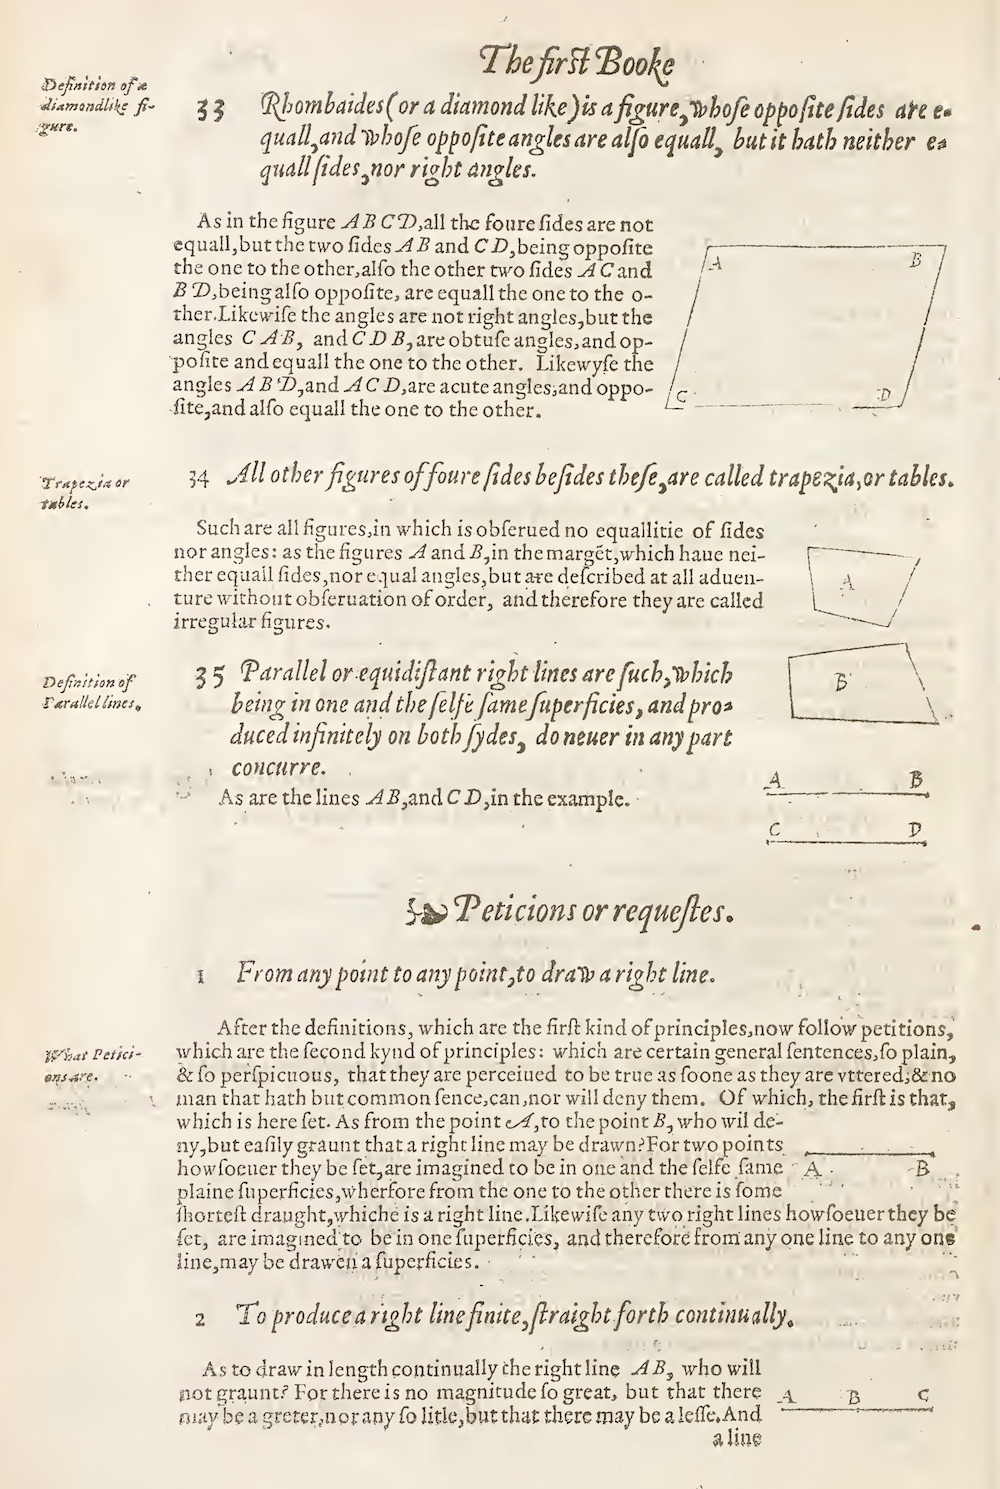 The first Booke
Definition of a
diamondlike fi-
gure.
33 Rhombaides (or a diamond like) is a figure, whoſe oppoſite ſides are e-
quall, and whoſe oppoſite angles are alſo equall, but it hath neither e-
quall ſides, nor right angles.
As in the figure ABCD, all the foure ſides are not
equall, but the two ſides AB and CD, being oppoſite
the one to the other, alſo the other two ſides AC and
BD, being alſo oppoſite, are equall the one to the o-
ther. Likewiſe the angles are not right angles, but the
angles CAB, and CDB, are obtuſe angles, and op-
poſite and equall the one to the other. Likewyſe the
angles ABD, and ACD, are acute angles, and oppo-
ſite, and alſo equall the one to the other.
A B
C D
Trapezia or
tables.
34 All other figures of foure ſides beſides theſe, are called trapezia, or tables.
Such are all figures, in which is obſerued no equallitie of ſides
nor angles: as the figures A and B, in the margēt, which haue nei-
ther equall ſides, nor equal angles, but are deſcribed at all aduen-
ture without obſeruation of order, and therefore they are called
irregular figures.
A
B
Definition of
Parallel lines.
35 Parallel or equidiſtant right lines are ſuch, which
being in one and the ſelfe ſame ſuperficies, and pro-
duced infinitely on both ſydes, do neuer in any part
concurre.
As are the lines AB, and CD, in the example.
A B
C D
Peticions or requeſtes.
1 From any point to any point, to draw a right line.
What Petici-
ons are.
After the definitions, which are the firſt kind of principles, now follow petitions,
which are the ſecond kynd of principles: which are certain general ſentences, ſo plain,
& ſo perſpicuous, that they are perceiued to be true as ſoone as they are vttered, & no
man that hath but common ſence, can, nor will deny them. Of which, the firſt is that,
which is here ſet. As from the point A, to the point B, who wil de-
ny, but eaſily graunt that a right line may be drawn? For two points
howſoeuer they be ſet, are imagined to be in one and the ſelfe ſame
plaine ſuperficies, wherfore from the one to the other there is ſome
ſhorteſt draught, whiche is a right line. Likewiſe any two right lines howſoeuer they be
ſet, are imagined to be in one ſuperficies, and therefore from any one line to any one
line, may be drawen a ſuperficies.
A B
2 To produce a right line finite, ſtraight forth continually.
As to draw in length continually the right line AB, who will
not graunt? For there is no magnitude ſo great, but that there
may be a greter, nor any ſo litle, but that there may be a leſſe. And
a line
A B C